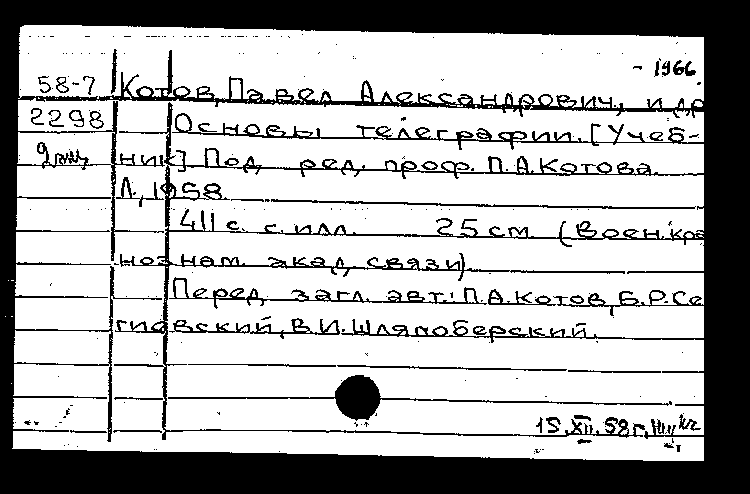 - 1966.
58-7 Котов, Павел Александрович, и др
2298 Основы телеграфии. [Учеб-
ник] Под ред. проф. П.А.Котова.
Л., 1958
411 с. с илл. 25 см. (Воен. кра
нознам. акад. связи).
Перед загл. авт.: П.А.Котов, Б.Р.Се
гиевский, В.И.Шляпоберский.
15.XII.58г.